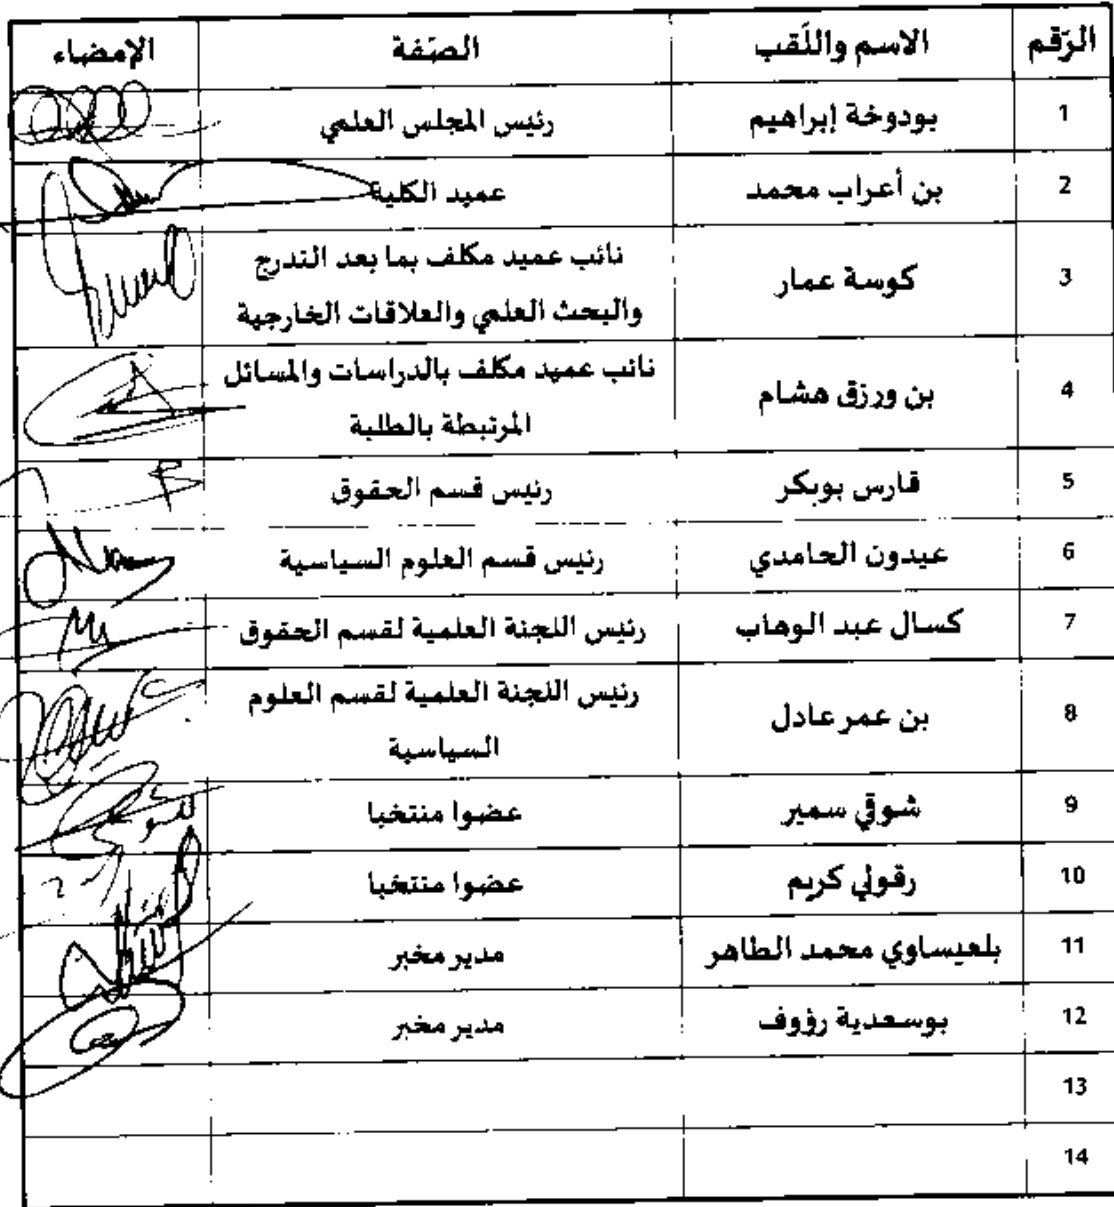 الرّقم الاسم واللّقب الصّفة الإمضاء
1 بودوخة إبراهيم رئيس المجلس العلمي
2 بن أعراب محمد عميد الكلية
3 كوسة عمار نائب عميد مكلف بما بعد التدرج
والبحث العلمي والعلاقات الخارجية
4 بن ورزق هشام نائب عميد مكلف بالدراسات والمسائل
المرتبطة بالطلبة
5 قارس بوبكر رئيس قسم الحقوق
6 عيدون الحامدي رئيس قسم العلوم السياسية
7 كسال عبد الوهاب رئيس اللجنة العلمية لقسم الحقوق
8 بن عمر عادل رئيس اللجنة العلمية لقسم العلوم
السياسية
9 شوقي سمير عضوا منتخبا
10 رقولي كريم عضوا منتخبا
11 بلعيساوي محمد الطاهر مدير مخبر
12 بوسعدية رؤوف مدير مخبر
13
14